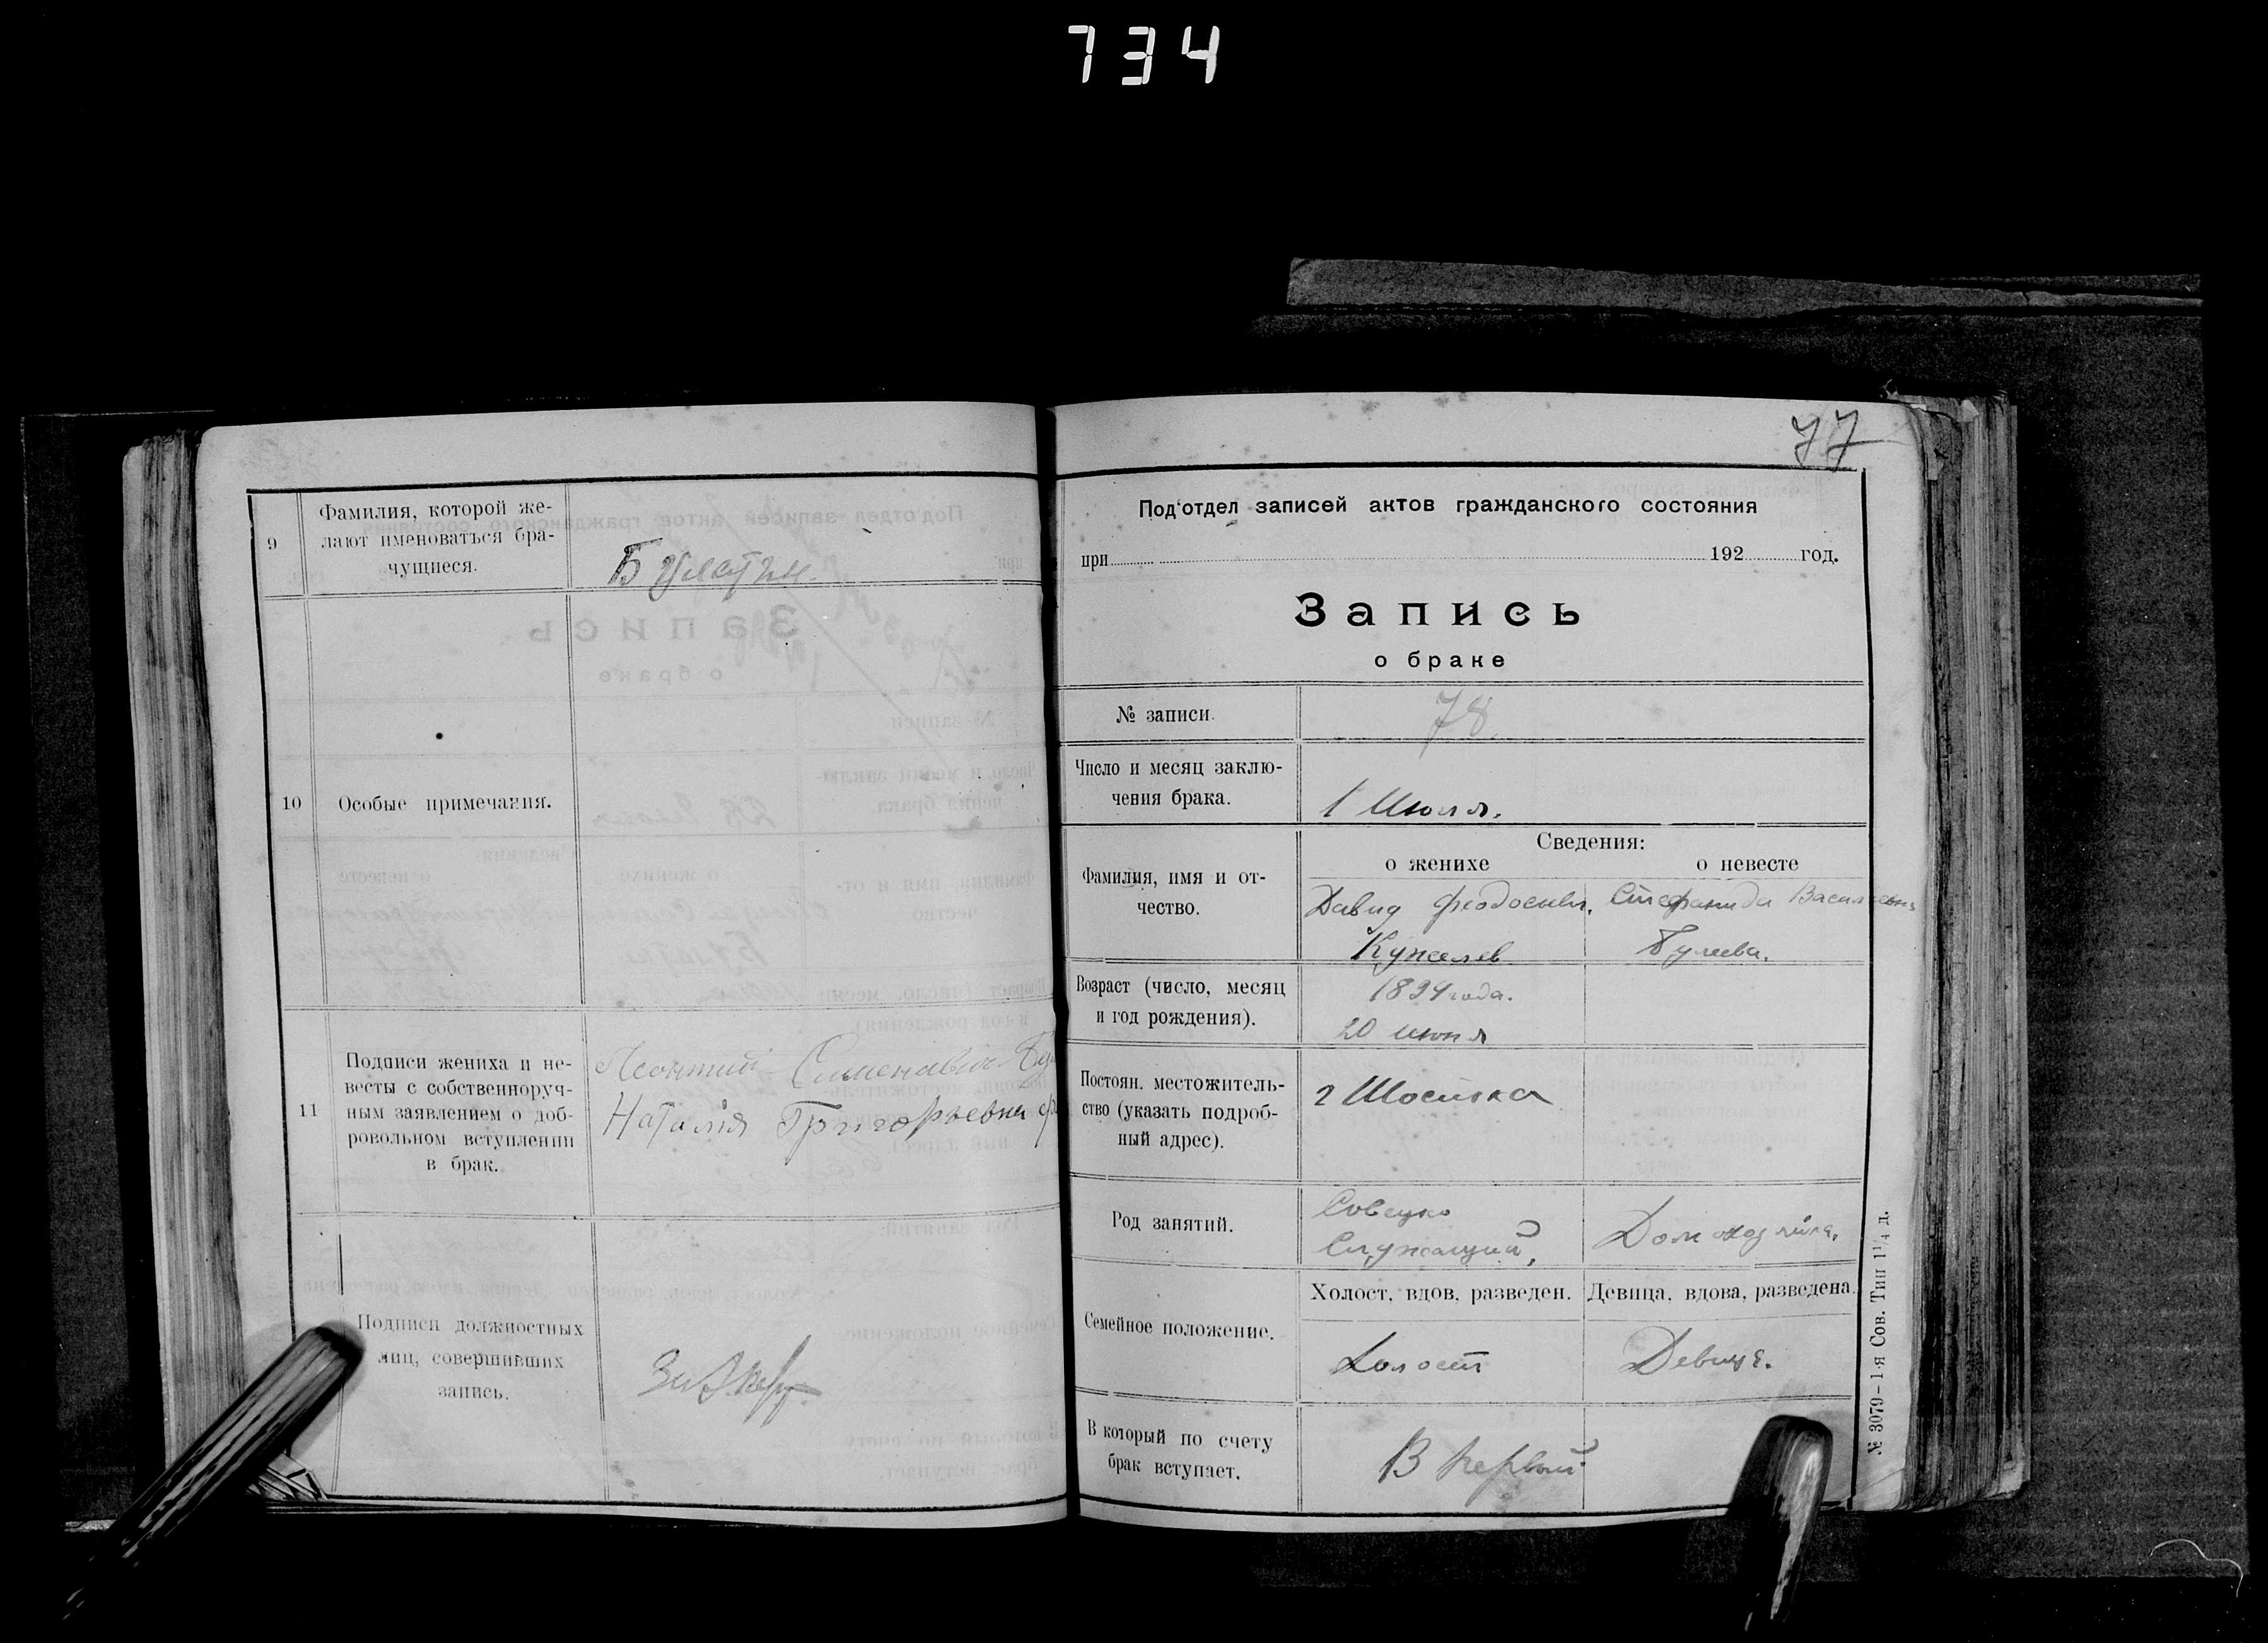 734
9
Фамилия, которой же-
лают именоваться бра-
чущиеся.
10
Особые примечания.
11
Подписи жениха и не-
весты с собственноруч-
ным заявлением о доб-
ровольном вступлении
в брак.
Леонтий
Наталія Григорьевна
Подписи должностных
лиц, совершивших
запись.
77
Под'отдел записей актов гражданского состояния
при 192 год.
Запись
о браке
№ записи.
78.
Число и месяц заклю-
чения брака.
1 Июля.
Сведения:
о женихе
о невесте
Фамилия, имя и от-
чество.
Давид Феодосиев. Стефанида
Кужелев
Возраст (число, месяц
и год рождения).
1894 года.
20 июня
Постоян. местожитель-
ство (указать подроб-
ный адрес).
г Шостка
Род занятий.
Служащий,
Семейное положение.
Холост, вдов, разведен.
Девица, вдова, разведена.
Холост
Девица.
В который по счету
брак вступает.
В первый
№ 3079-1-я Сов. Тип 1¹/₄ д.